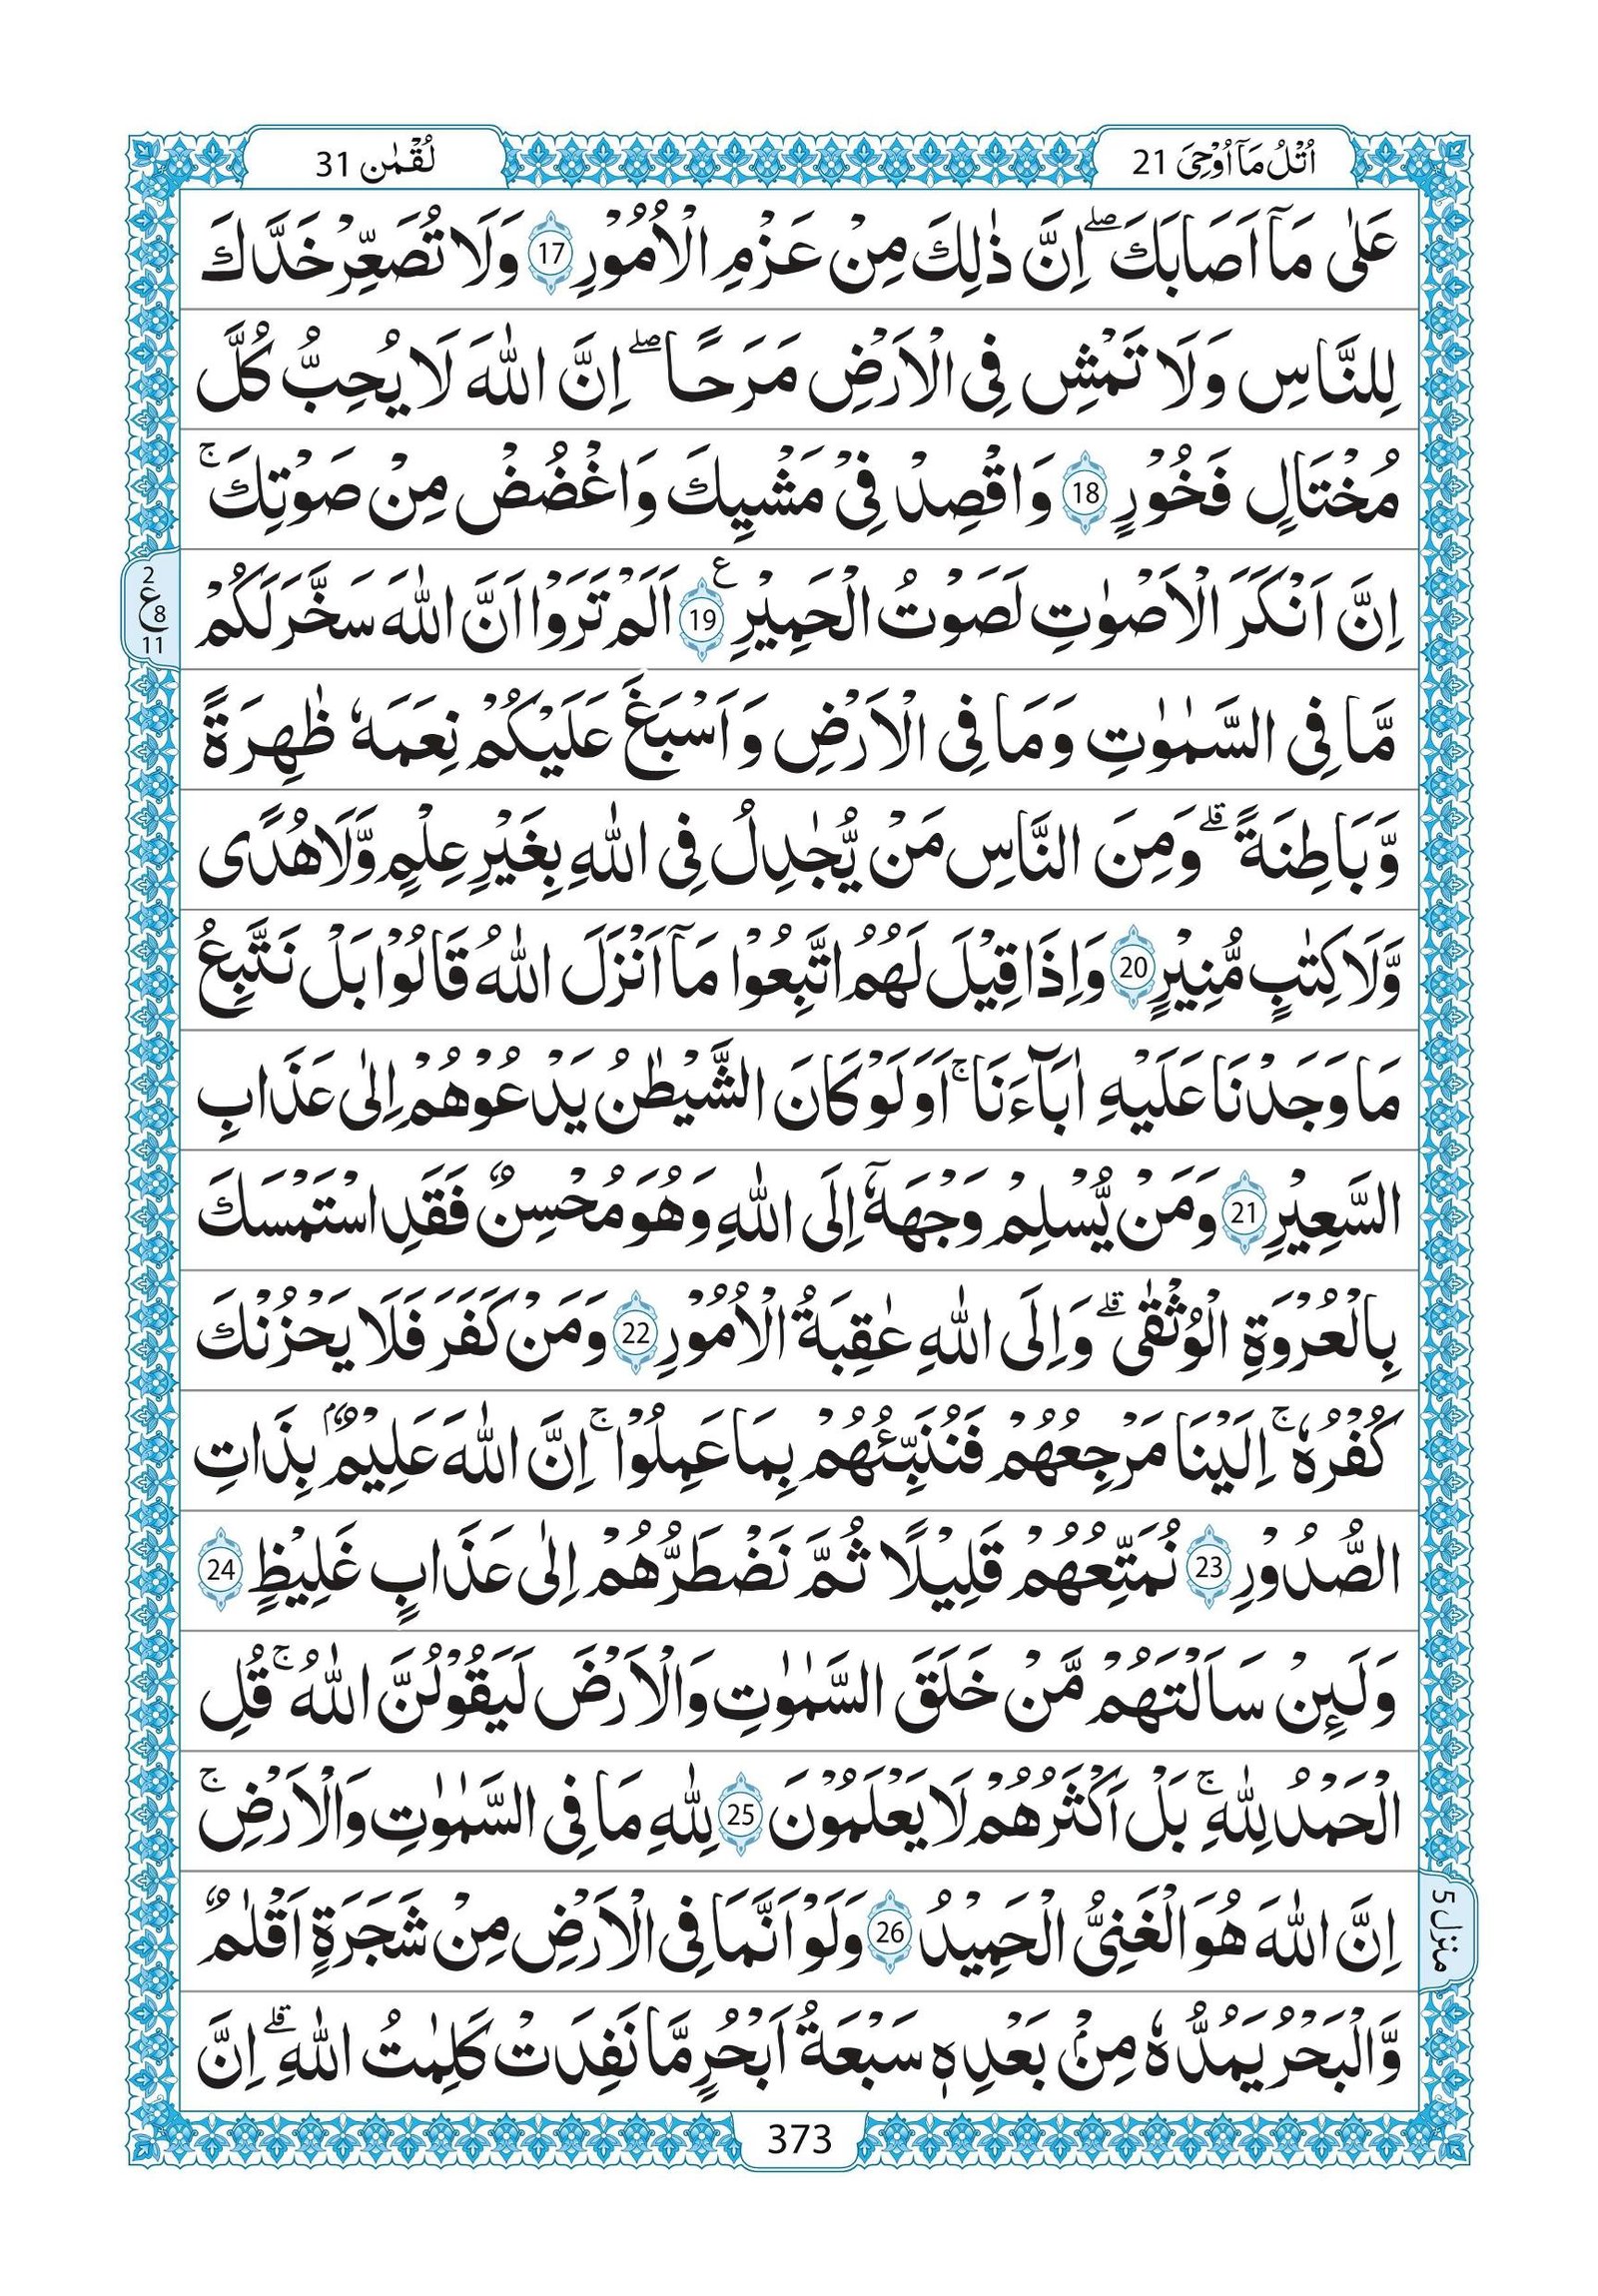 اُتْلُ مَاۤ اُوْحِیَ 21
لُقْمٰن 31
عَلٰى مَاۤ اَصَابَكَ ؕۖ اِنَّ ذٰلِكَ مِنْ عَزْمِ الْاُمُوْرِ 17 وَلَا تُصَعِّرْ خَدَّكَ
لِلنَّاسِ وَلَا تَمْشِ فِى الْاَرْضِ مَرَحًا ۖ اِنَّ اللّٰهَ لَا يُحِبُّ كُلَّ
مُخْتَالٍ فَخُوْرٍ 18 وَاقْصِدْ فِىْ مَشْيِكَ وَاغْضُضْ مِنْ صَوْتِكَ ۚ
اِنَّ اَنْكَرَ الْاَصْوٰتِ لَصَوْتُ الْحَمِيْرِ 19 اَلَمْ تَرَوْا اَنَّ اللّٰهَ سَخَّرَ لَكُمْ
2
ع 8
11
مَّا فِى السَّمٰوٰتِ وَمَا فِى الْاَرْضِ وَاَسْبَغَ عَلَيْكُمْ نِعَمَهٗ ظٰهِرَةً
وَّبَاطِنَةً ۗ وَمِنَ النَّاسِ مَنْ يُّجٰدِلُ فِى اللّٰهِ بِغَيْرِ عِلْمٍ وَّلَا هُدًى
وَّلَا كِتٰبٍ مُّنِيْرٍ 20 وَاِذَا قِيْلَ لَهُمُ اتَّبِعُوْا مَاۤ اَنْزَلَ اللّٰهُ قَالُوْا بَلْ نَتَّبِعُ
مَا وَجَدْنَا عَلَيْهِ اٰبَآءَنَا ۚ اَوَلَوْ كَانَ الشَّيْطٰنُ يَدْعُوْهُمْ اِلٰى عَذَابِ
السَّعِيْرِ 21 وَمَنْ يُّسْلِمْ وَجْهَهٗۤ اِلَى اللّٰهِ وَهُوَ مُحْسِنٌ فَقَدِ اسْتَمْسَكَ
بِالْعُرْوَةِ الْوُثْقٰى ۗ وَاِلَى اللّٰهِ عٰقِبَةُ الْاُمُوْرِ 22 وَمَنْ كَفَرَ فَلَا يَحْزُنْكَ
كُفْرُهٗ ۚ اِلَيْنَا مَرْجِعُهُمْ فَنُنَبِّئُهُمْ بِمَا عَمِلُوْا ۚ اِنَّ اللّٰهَ عَلِيْمٌۢ بِذَاتِ
الصُّدُوْرِ 23 نُمَتِّعُهُمْ قَلِيْلًا ثُمَّ نَضْطَرُّهُمْ اِلٰى عَذَابٍ غَلِيْظٍ 24
وَلَىِٕنْ سَاَلْتَهُمْ مَّنْ خَلَقَ السَّمٰوٰتِ وَالْاَرْضَ لَيَقُوْلُنَّ اللّٰهُ ۚ قُلِ
الْحَمْدُ لِلّٰهِ ۚ بَلْ اَكْثَرُهُمْ لَا يَعْلَمُوْنَ 25 لِلّٰهِ مَا فِى السَّمٰوٰتِ وَالْاَرْضِ ۚ
اِنَّ اللّٰهَ هُوَ الْغَنِىُّ الْحَمِيْدُ 26 وَلَوْ اَنَّمَا فِى الْاَرْضِ مِنْ شَجَرَةٍ اَقْلٰمٌ
منزل 5
وَّالْبَحْرُ يَمُدُّهٗ مِنْۢ بَعْدِهٖ سَبْعَةُ اَبْحُرٍ مَّا نَفِدَتْ كَلِمٰتُ اللّٰهِ ۗ اِنَّ
373